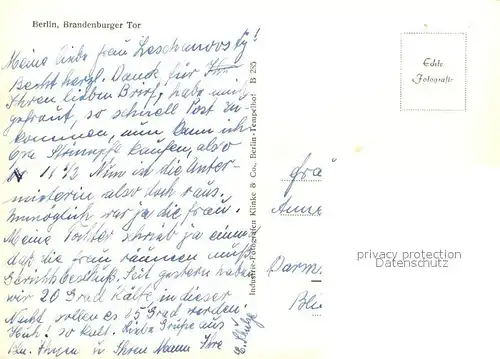 Berlin, Brandenburger Tor
Meine liebe Frau Leschanovsky!
Recht herzl. Dank für Ihr
Ihren lieben Brief, habe mich
gefreut, so schnell Post zu
bekommen, nun kann ich
kaufen, also
Nun ist die Unter-
mieterin also doch raus.
Unmöglich war ja die Frau.
Meine Tochter schrieb ja einmal
daß die Frau räumen muß
Gerichtsbeschluß. Seit gestern haben
wir 20 Grad Kälte, in dieser
Nacht sollen es 25 Grad werden.
Huh! so kalt. Liebe Grüße aus
Bln. Ihnen u. Ihren Mann Ihre
E. Schulze
Industrie-Fotografen Klinke & Co., Berlin-Tempelhof B 285
Echte
Fotografie
Frau
Darm
privacy protection
Datenschutz